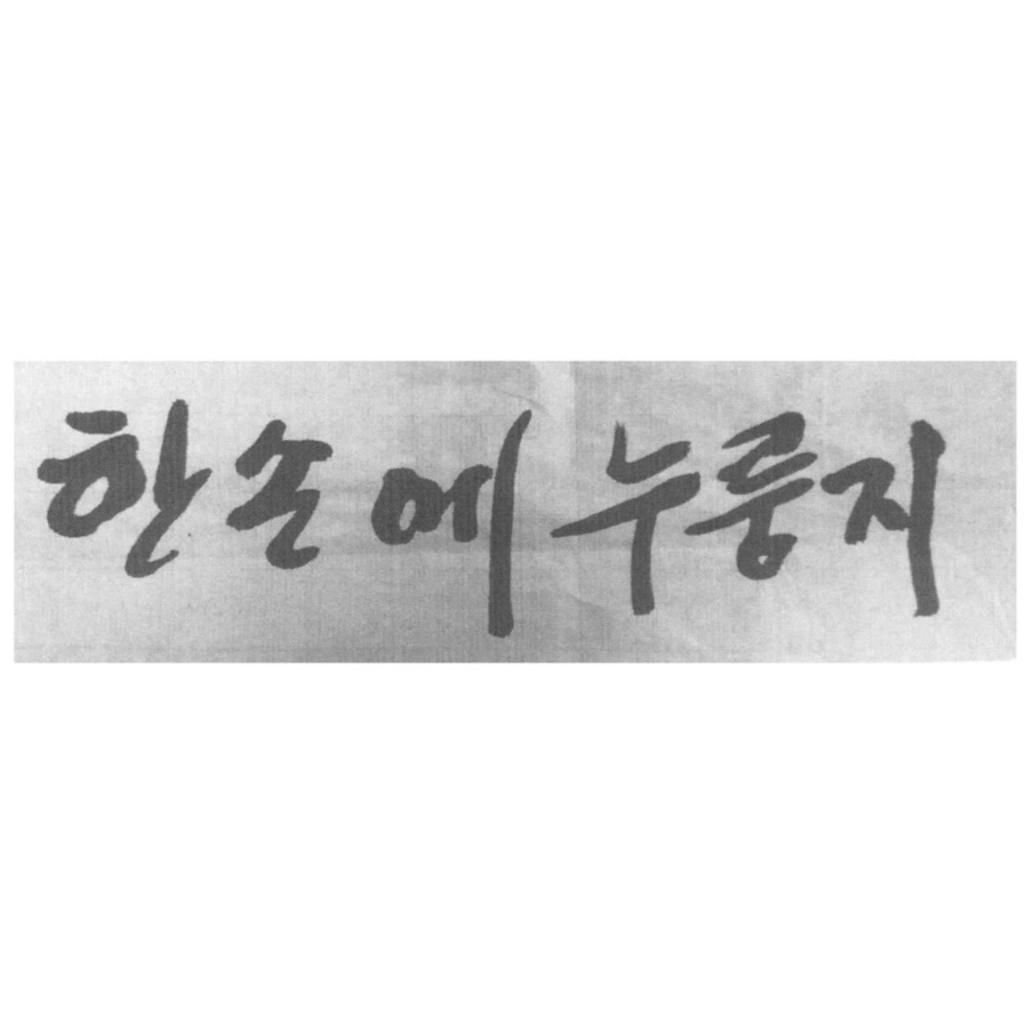 한손에 누룽지